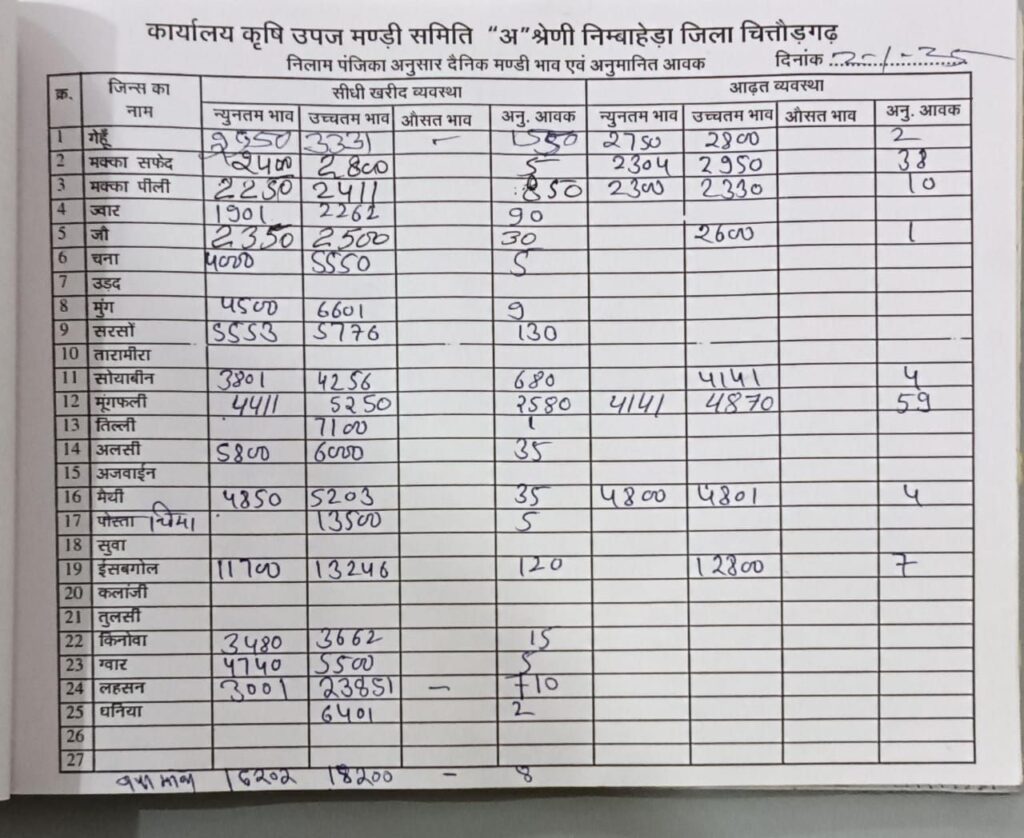 कार्यालय कृषि उपज मण्डी समिति "अ"श्रेणी निम्बाहेड़ा जिला चित्तौड़गढ़
निलाम पंजिका अनुसार दैनिक मण्डी भाव एवं अनुमानित आवक दिनांक
क्र. जिन्स का नाम सीधी खरीद व्यवस्था आढ़त व्यवस्था
न्युनतम भाव उच्चतम भाव औसत भाव अनु. आवक न्युनतम भाव उच्चतम भाव औसत भाव अनु. आवक
1 गेहूँ 3331 - 2750 2800 2
2 मक्का सफेद 2400 2800 5 2304 2950 38
3 मक्का पीली 2250 2411 850 2300 2330 10
4 ज्वार 1901 2262 90
5 जौ 2350 2500 30 2600 1
6 चना 4000 5550 5
7 उड़द
8 मुंग 4500 6601 9
9 सरसों 5553 5776 130
10 तारामीरा
11 सोयाबीन 3801 4256 680 4141 4
12 मूंगफली 4411 5250 2580 4141 4870 59
13 तिल्ली 7100 1
14 अलसी 5800 6000 35
15 अजवाईन
16 मैथी 4850 5203 35 4800 4801 4
17 पोस्ता 13500 5
18 सुवा
19 ईसबगोल 11700 13246 120 12800 7
20 कलांजी
21 तुलसी
22 किनोवा 3480 3662 15
23 ग्वार 4740 5500 5
24 लहसन 3001 23851 - 710
25 धनिया 6401 2
26
27
16202 18200 - 8